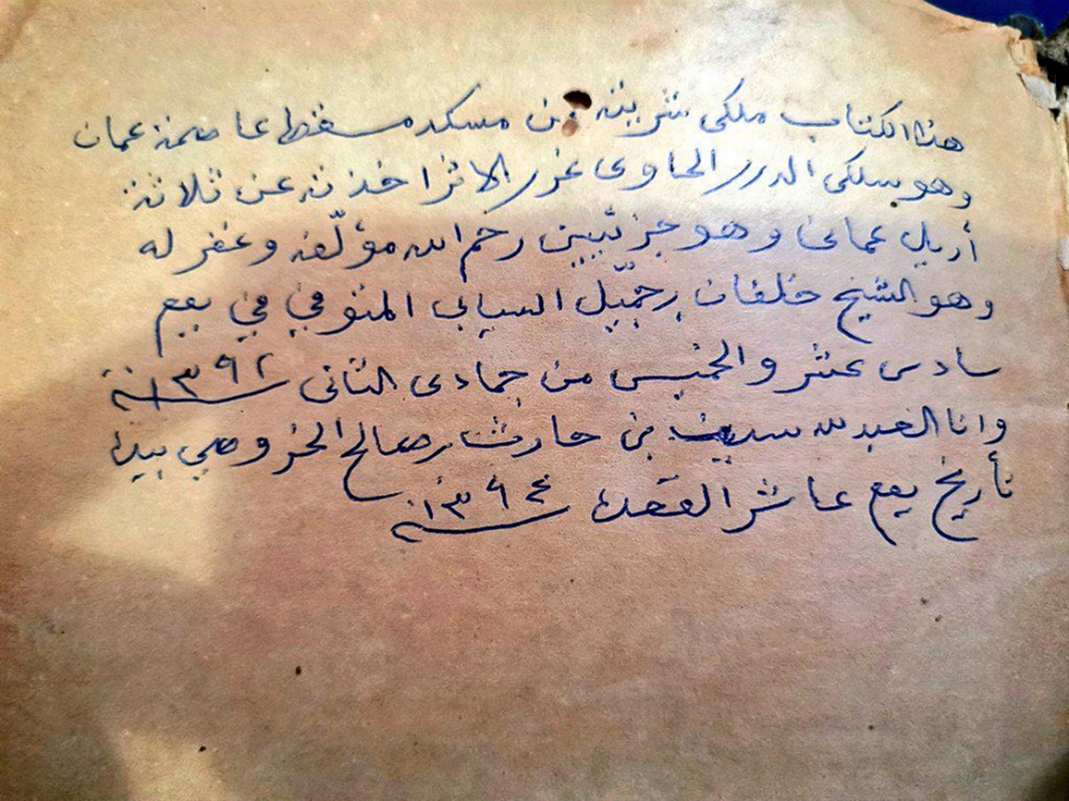 هذا الكتاب ملكي شريته من مسكد مسقط عاصمة عمان
وهو سلك الدرر الحاوى غرر الاثر اخذته عن ثلاثة
أريل عمانى وهو جزئيين رحم الله مؤلّفه وغفر له
وهو الشيخ خلفان بن جمّيل السيابي المتوفي في يوم
سادس عشر والخميس من جمادى الثانى سنة ١٣٩٢
وانا العبد لله سيف بن حارث بن صالح الخروصي بيده
تأريخ يوم عاشر القعده سنة ١٣٩٤